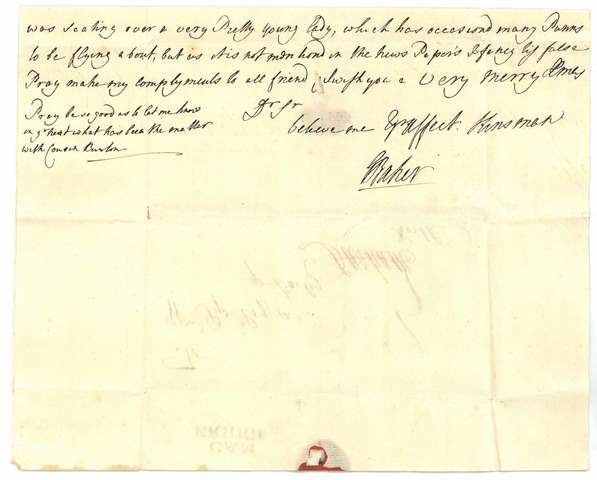 was sealing over a very Pretty young Lady, which has occasiond many Punns
to be flying about, but as it is not mentiond in the news Papers I fancy its false
Pray make my complyments to all friends, I wish you a very merry Xmas
Dr Sr
Pray be so good as to let me know
in yr next what has been the matter
with Cousen Burton
believe me Yr affect. Kinsman
Baker